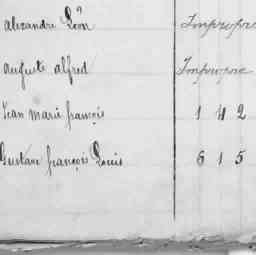 alexandre Léon Impropre
auguste alfred Impropre
Jean marie françois 1 4 2
Gustave françois Louis 6 1 5